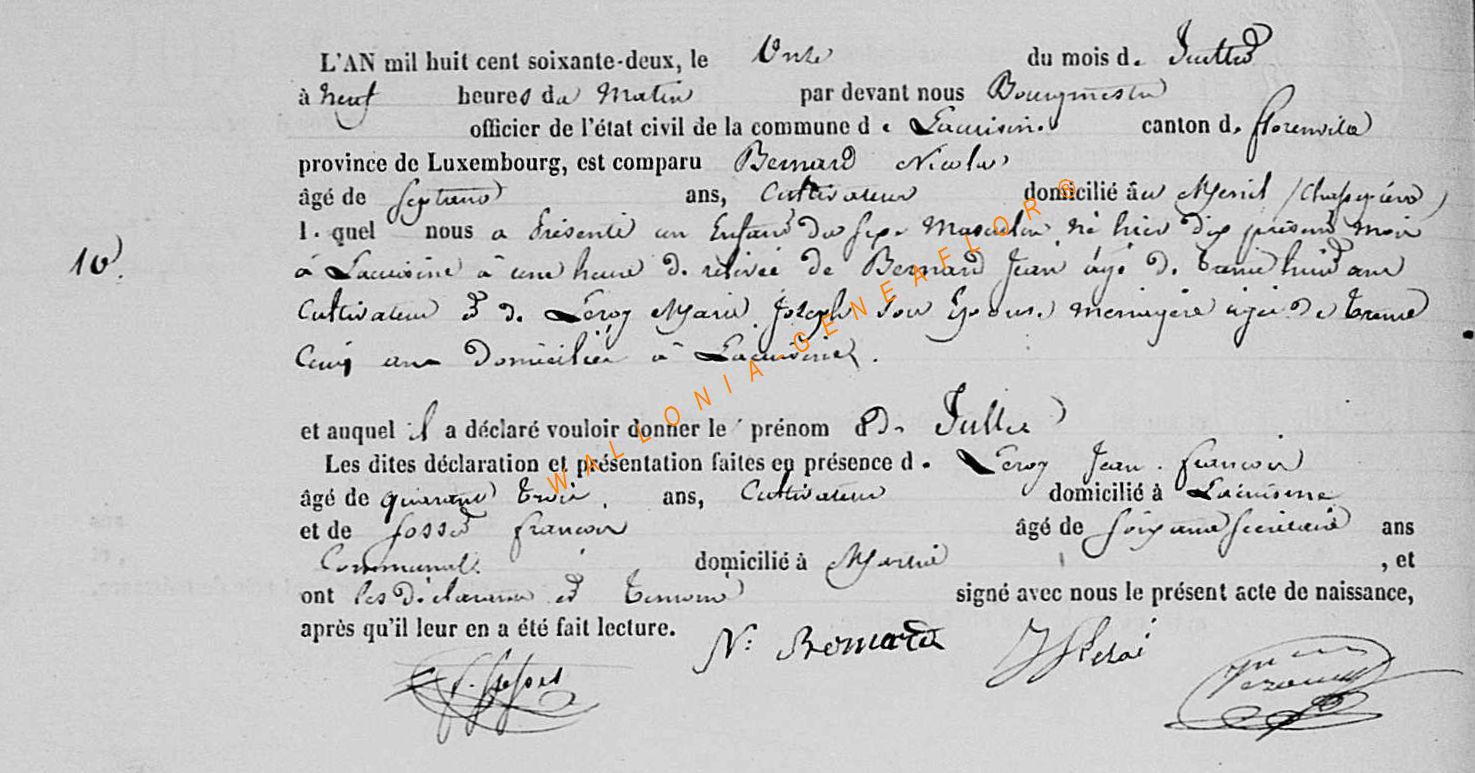 L'AN mil huit cent soixante-deux, le Onze du mois de Juillet
à neuf heures du Matin par devant nous Bourgmestre
officier de l'état civil de la commune de Lacuisine canton de florenville
province de Luxembourg, est comparu Bernard Nicolas
âgé de Septante ans, Cultivateur domicilié au Mesnil /Chassepierre/
lequel nous a Présenté un Enfant du sexe Masculin né hier dix présent mois
10. à Lacuisine à une heure de relevée de Bernard Jean âgé de trente huit ans
Cultivateur et de Leroy Marie Joseph son Epouse ménagère agée de trente
Cinq ans domiciliés à Lacuisine.
et auquel il a déclaré vouloir donner le prénom de
Les dites déclaration et présentation faites en présence de Leroy Jean françois
âgé de quarante trois ans, Cultivateur domicilié à Lacuisine
et de fosset françois âgé de Soixante Secrétaire ans
Communal domicilié à , et
ont les déclarant et témoins signé avec nous le présent acte de naissance,
après qu'il leur en a été fait lecture. N: Bernard
WALLONIA-GENEAFLOR®